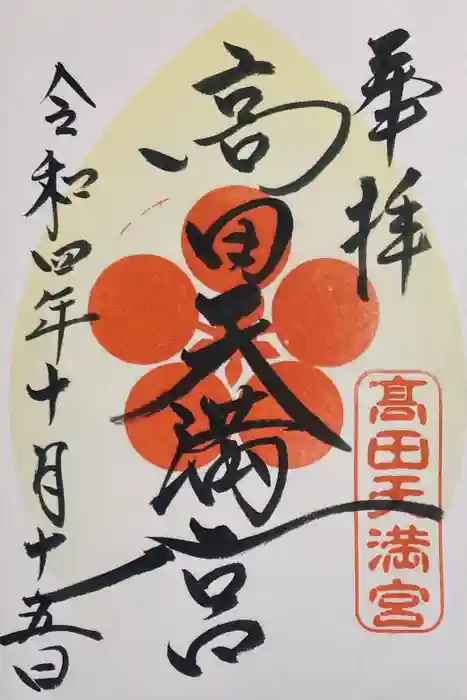 奉拝
髙田天満宮
高田天満宮
令和四年十月十五日